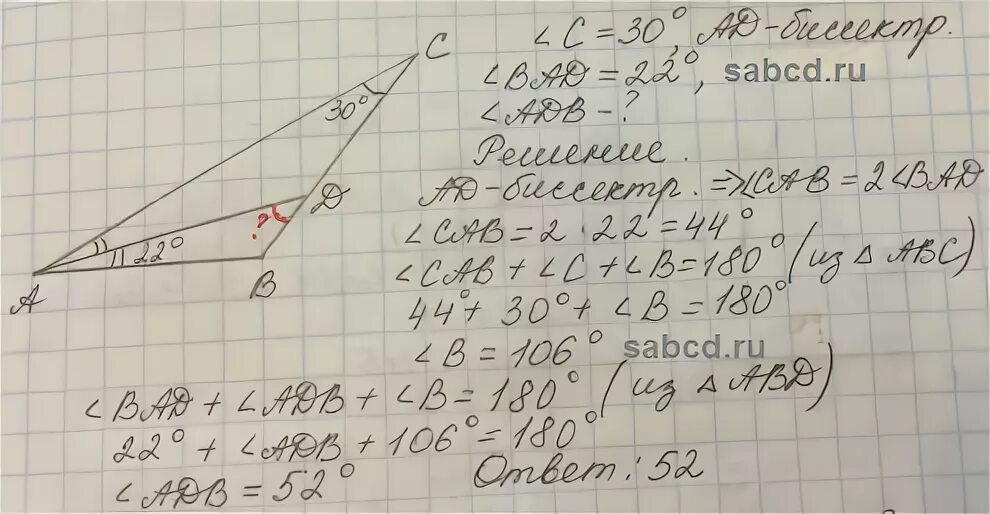 ∠C = 30°, AD-биссектр.
∠BAD = 22°, sabcd.ru
∠ADB - ?
Решение.
AD-биссектр. ⇒ ∠CAB = 2∠BAD
∠CAB = 2 · 22 = 44°
∠CAB + ∠C + ∠B = 180° (из △ ABC)
44° + 30° + ∠B = 180°
∠B = 106° sabcd.ru
∠BAD + ∠ADB + ∠B = 180° (из △ ABD)
22° + ∠ADB + 106° = 180°
∠ADB = 52° Ответ: 52
C
30°
D
?
22°
A
B